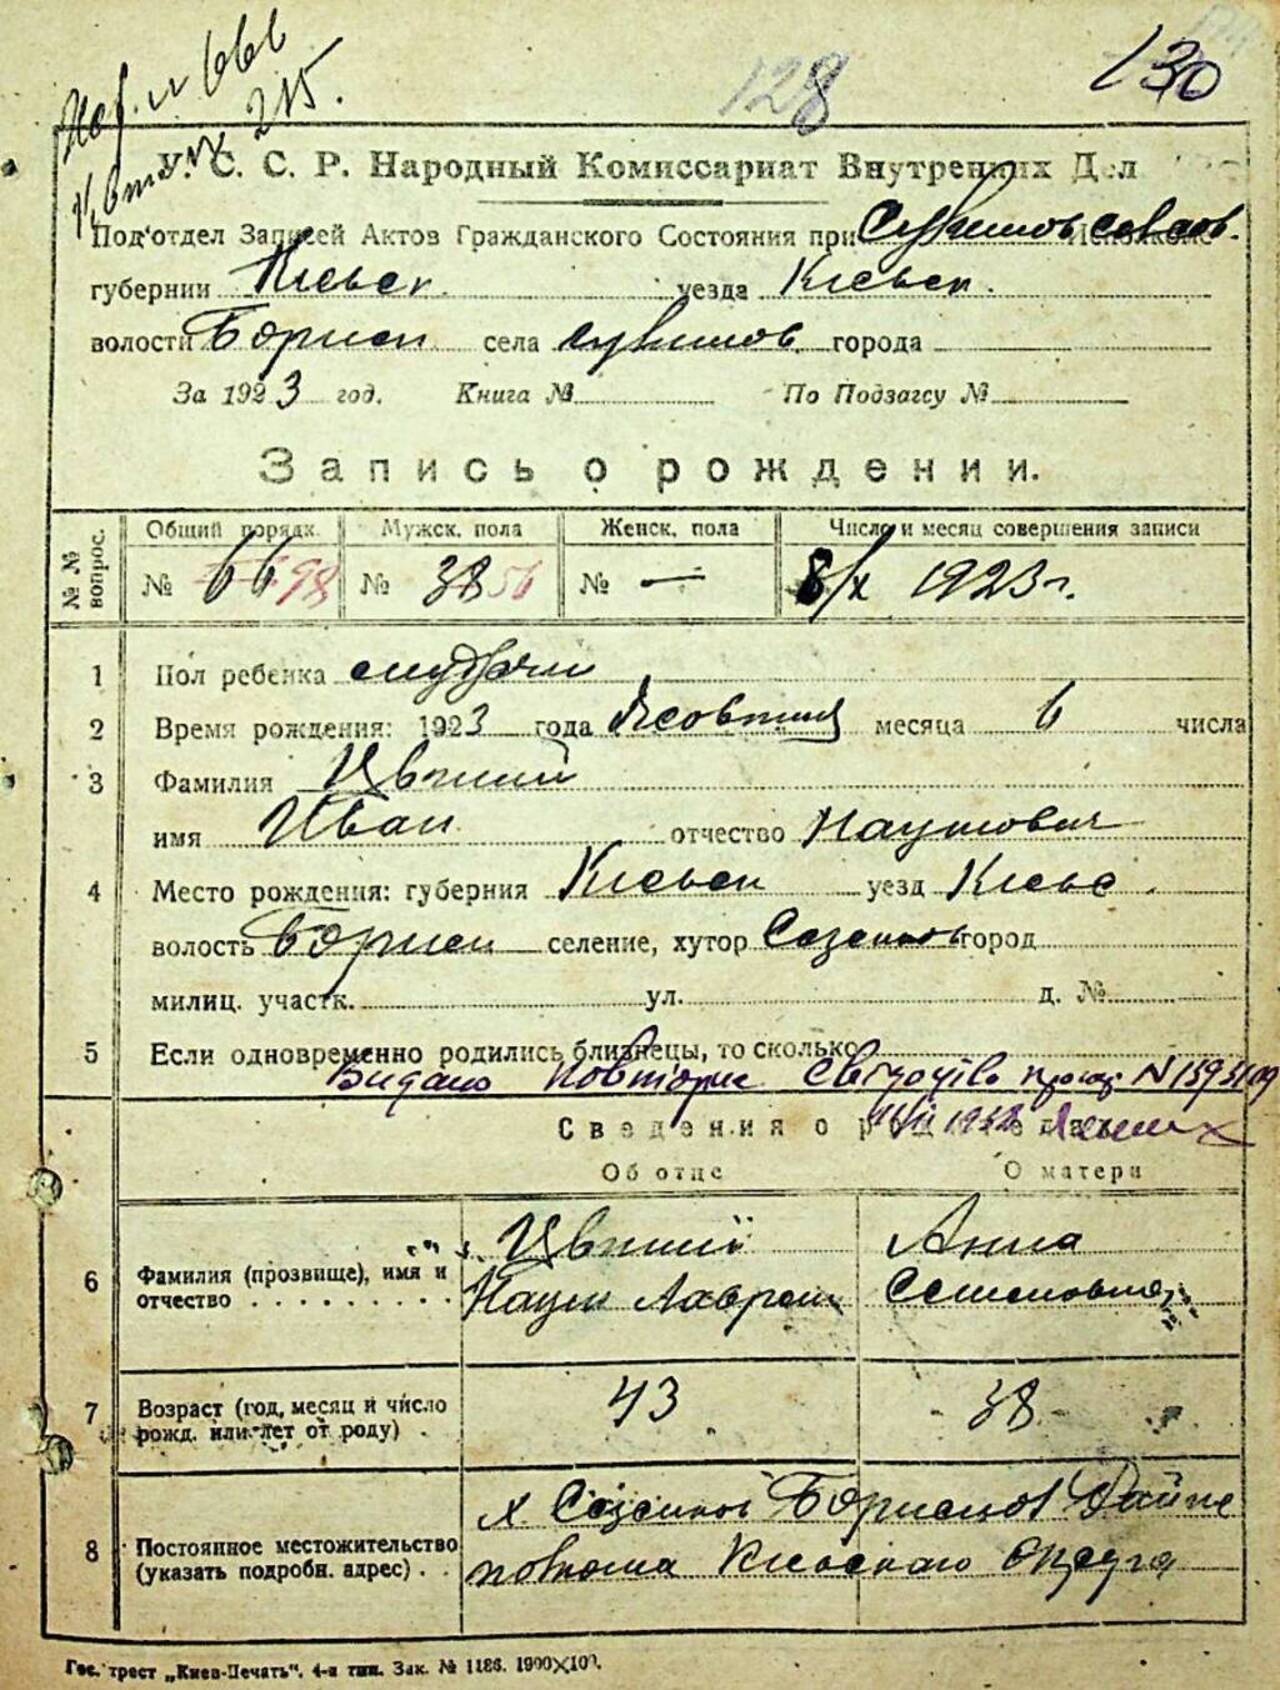 128
130
У. С. С. Р. Народный Комиссариат Внутренних Дел
Под'отдел Записей Актов Гражданского Состояния при
губернии Киевск. уезда Киевск.
волости Борисп села города
За 1923 год. Книга № По Подзагсу №
Запись о рождении.
№№ вопрос. Общий порядк. Мужск. пола Женск. пола Число и месяц совершения записи
№ 66 98 № 38 56 № — 8/X 1923 г.
1 Пол ребенка
2 Время рождения: 1923 года Жовтня месяца 6 числа
3 Фамилия
имя Иван отчество Наумович
4 Место рождения: губерния Киевск уезд Киевс.
волость Борисп селение, хутор Сазонов город
милиц. участк. ул. д. №
5 Если одновременно родились близнецы, то сколько
Видано повторне
Сведения о родителях
Об отце О матери
Анна
6 Фамилия (прозвище), имя и
отчество Наум Лаврен Семеновна
7 Возраст (год, месяц и число 43 38
рожд. или лет от роду)
х Сазонов
8 Постоянное местожительство
(указать подробн. адрес) Киевского Округа
Гос. трест „Киев-Печать". 4-я тип. Зак. № 1186.